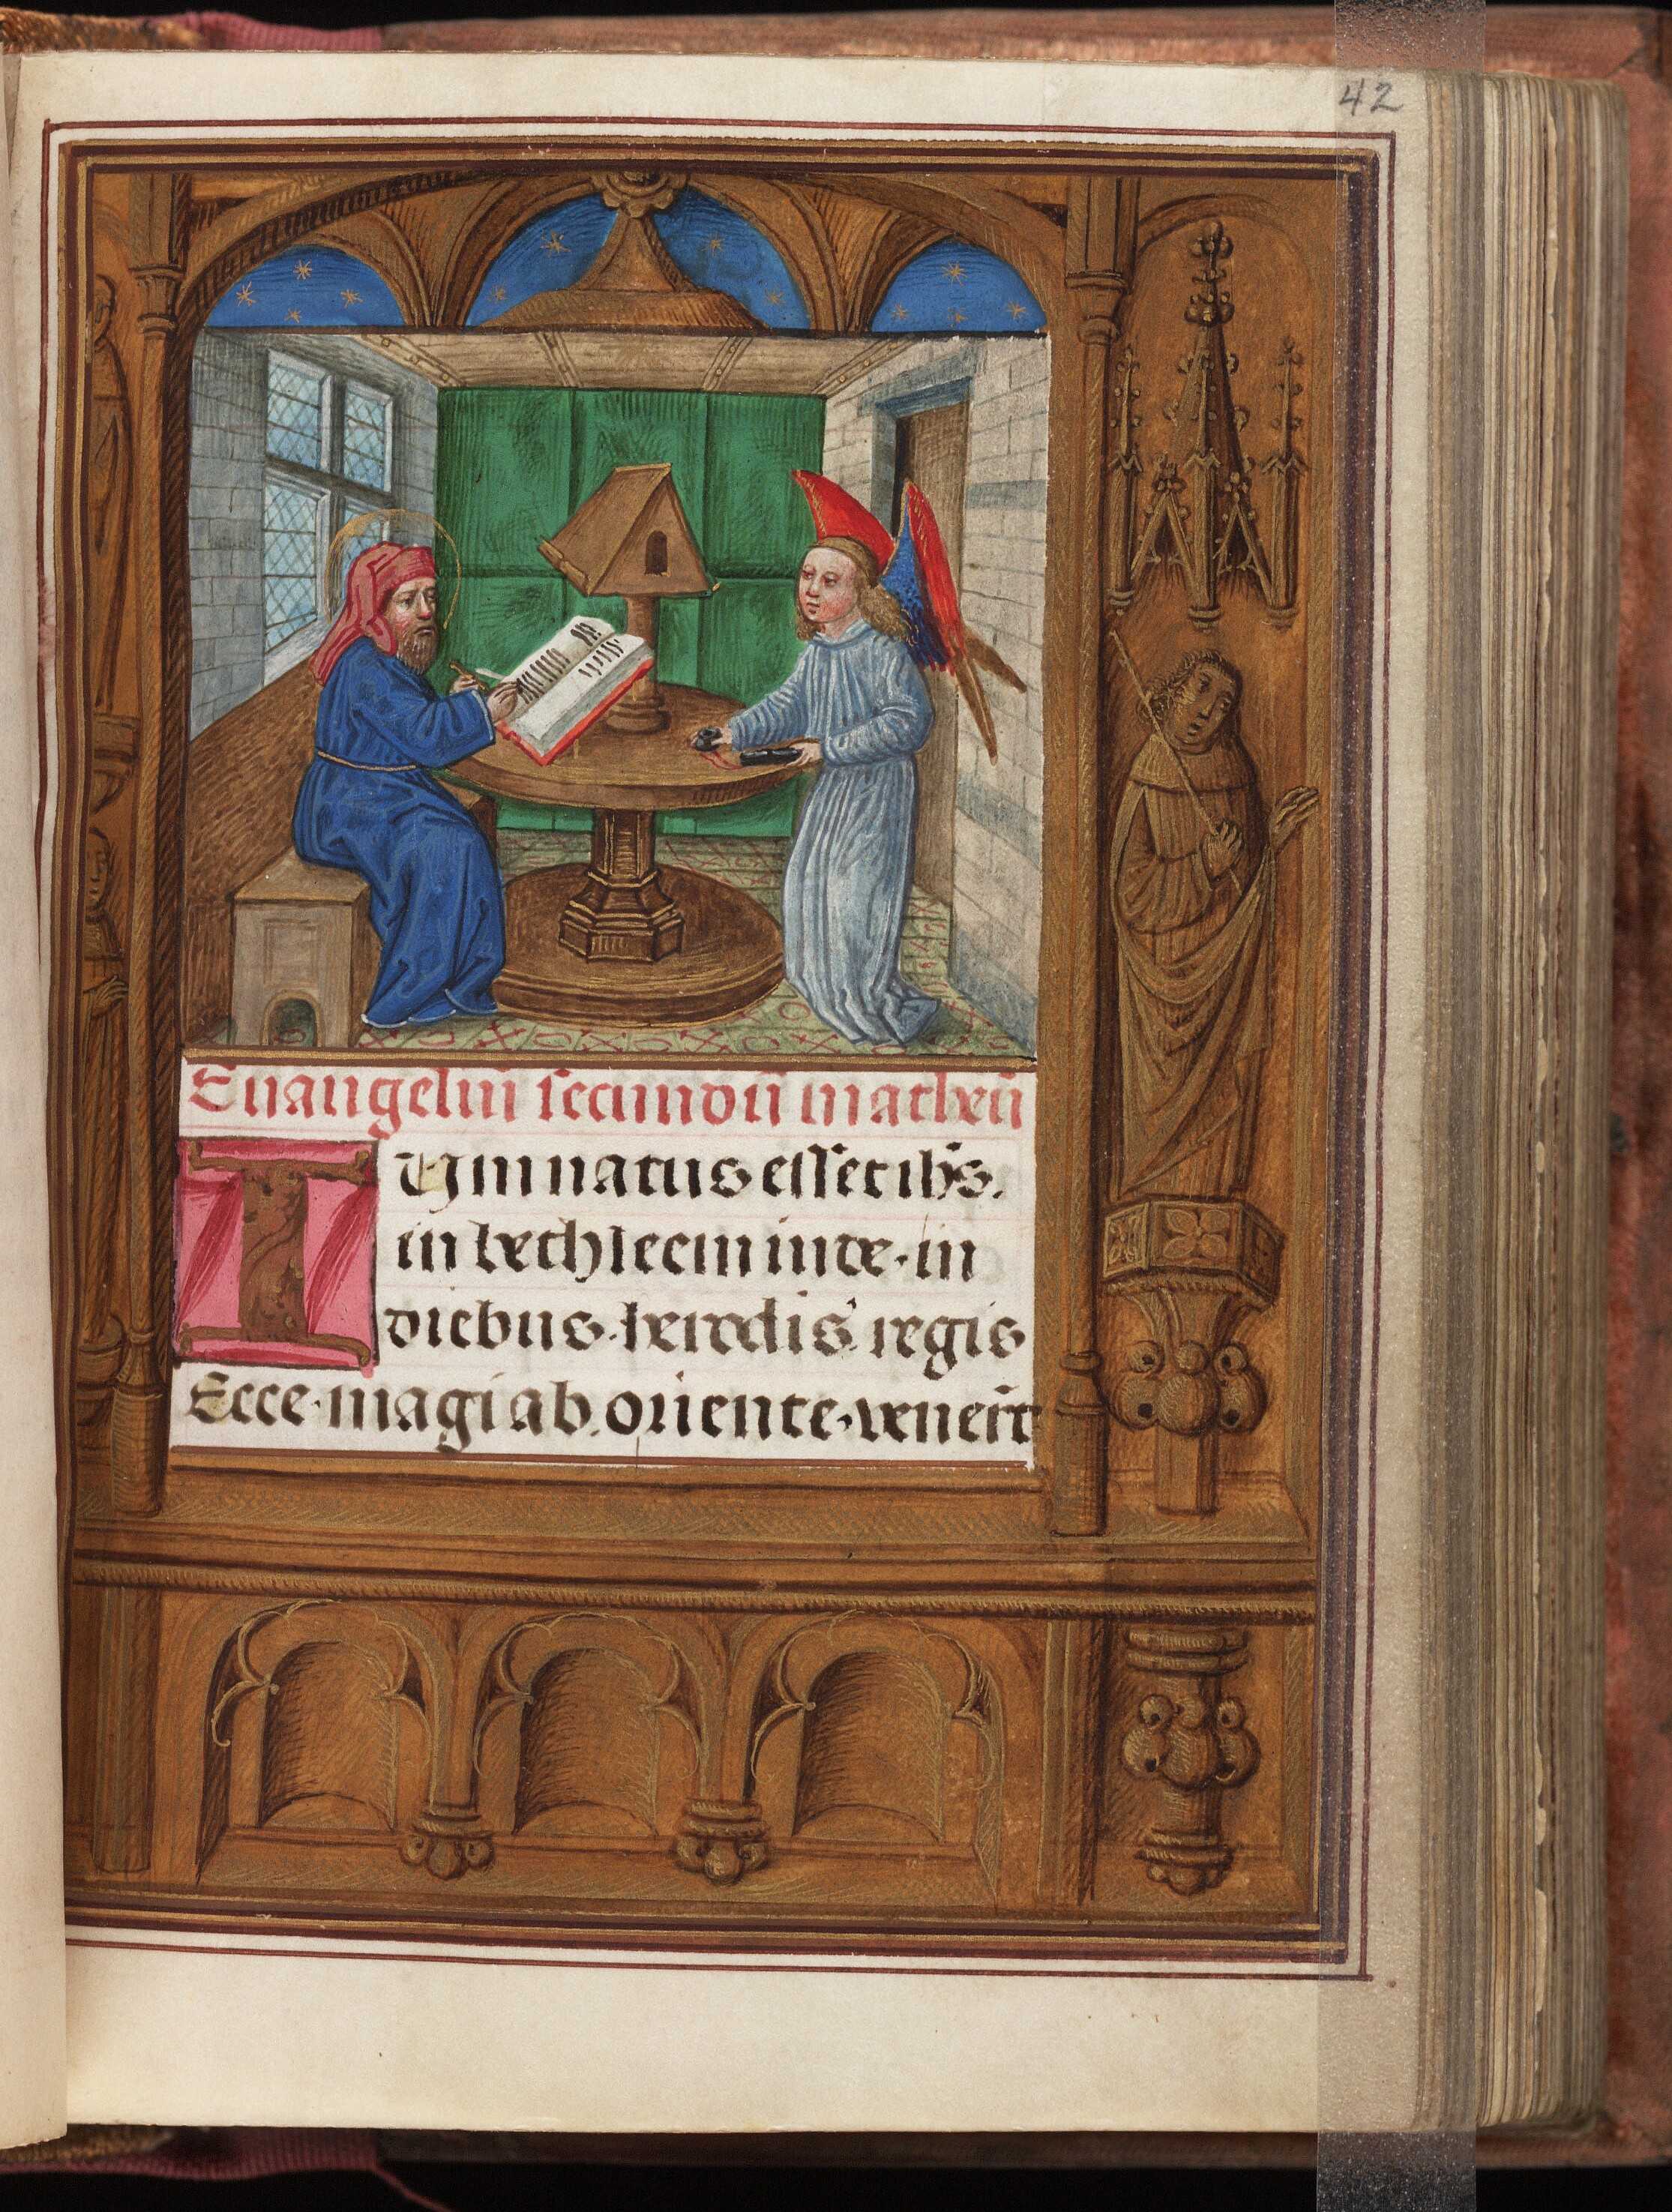 42
Euangeliū secundū matheū
I Um natus esset ihs̄.
in bethleem iude. in
diebus. herodis regis
Ecce. magi ab. oriente. venert̄